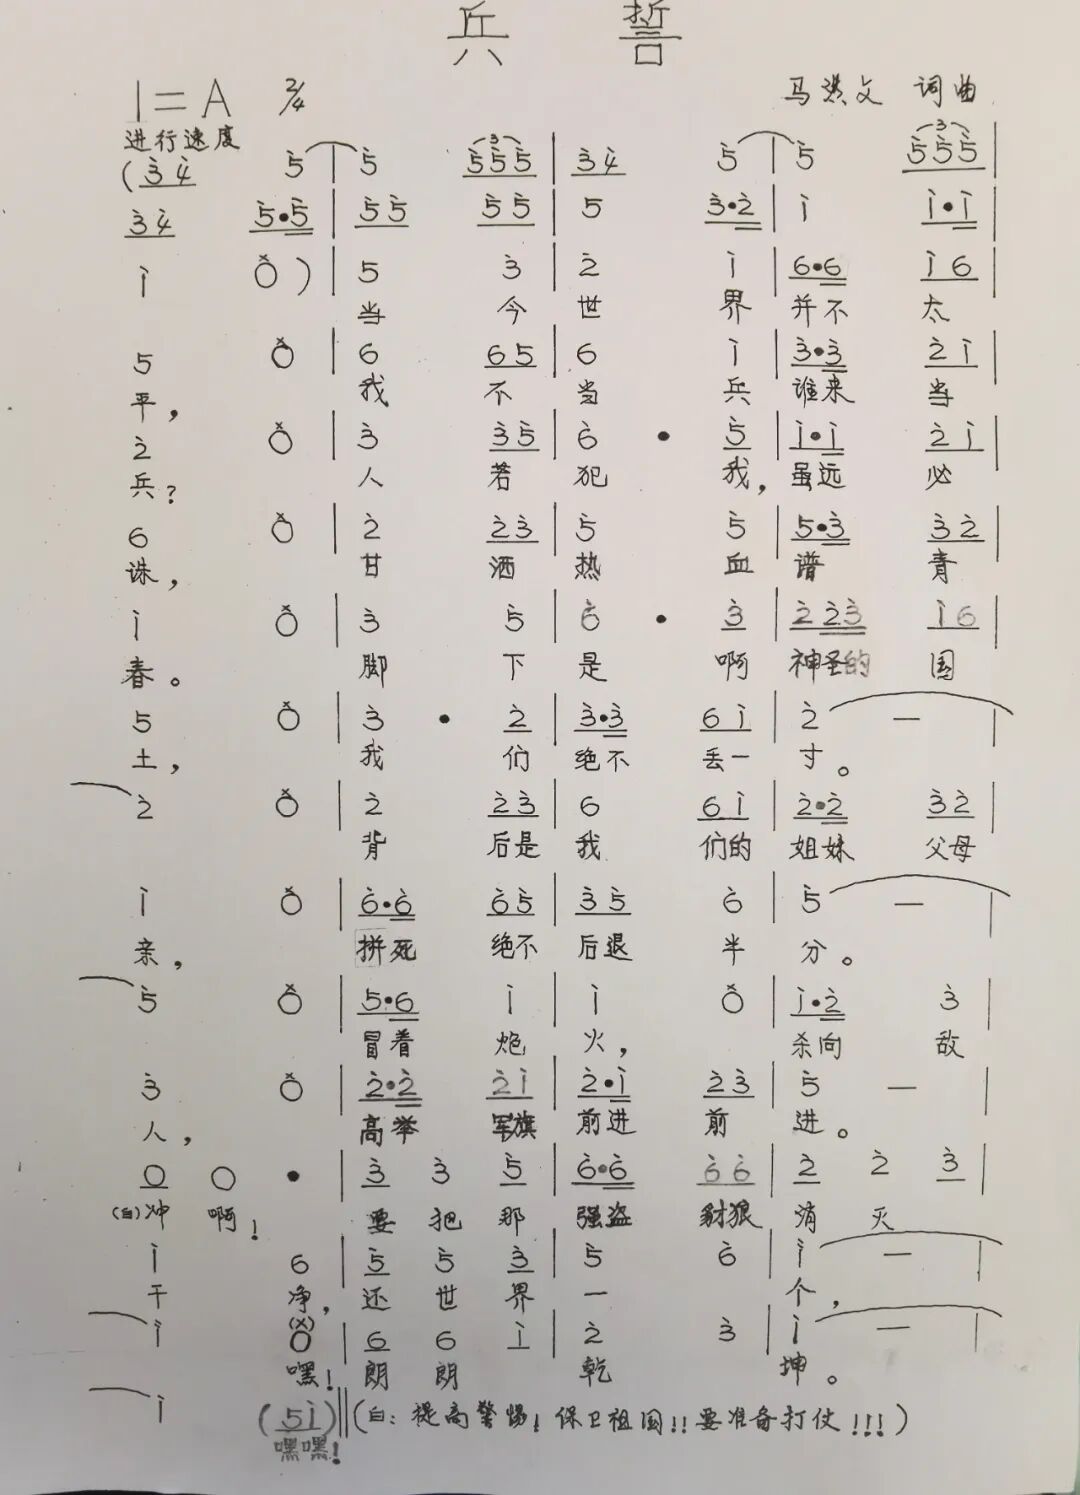 兵 誓
1=A 2/4 马洪文 词曲
进行速度
(3 4 5 | 5 5 5 5 | 3 4 5 | 5 5 5 5 |
3 4 5·5 | 5 5 5 5 | 5 3·2 | 1 1·1 |
1 0) | 5 3 | 2 1 | 6·6 1 6 |
当 今 世 界 并不 太
5 0 | 6 6 5 | 6 1 | 3·3 2 1 |
平, 我 不 当 兵 谁来 当
2 0 | 3 3 5 | 6 · 5 | 1·1 2 1 |
兵? 人 若 犯 我, 虽远 必
6 0 | 2 2 3 | 5 5 | 5·3 3 2 |
诛, 甘 洒 热 血 谱 青
1 0 | 3 5 | 6 · 3 | 2 2 3 1 6 |
春。 脚 下 是 啊 神圣的 国
5 0 | 3 · 2 | 3·3 6 1 | 2 — |
土, 我 们 绝不 丢一 寸。
2 0 | 2 2 3 | 6 6 1 | 2·2 3 2 |
背 后是 我 们的 姐妹 父母
1 0 | 6·6 6 5 | 3 5 6 | 5 — |
亲, 拼死 绝不 后退 半 分。
5 0 | 5·6 1 | 1 0 | 1·2 3 |
冒着 炮 火, 杀向 敌
3 0 | 2·2 2 1 | 2·1 2 3 | 5 — |
人, 高举 军旗 前进 前 进。
0 0 · | 3 3 5 | 6·6 6 6 | 2 2 3 |
(白)冲 啊! 要 把 那 强盗 豺狼 消 灭
1 6 | 5 5 3 | 5 6 | 1 — |
干 净, 还 世 界 一 个,
1 (X)0 | 6 6 1 | 2 3 | 1 — |
嘿! 朗 朗 乾 坤。
1 (5 1) ‖ (白: 提高警惕! 保卫祖国!! 要准备打仗!!!)
嘿嘿!